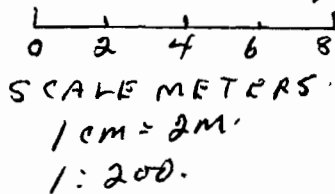 0 2 4 6 8
SCALE METERS.
1 cm = 2M.
1:200.